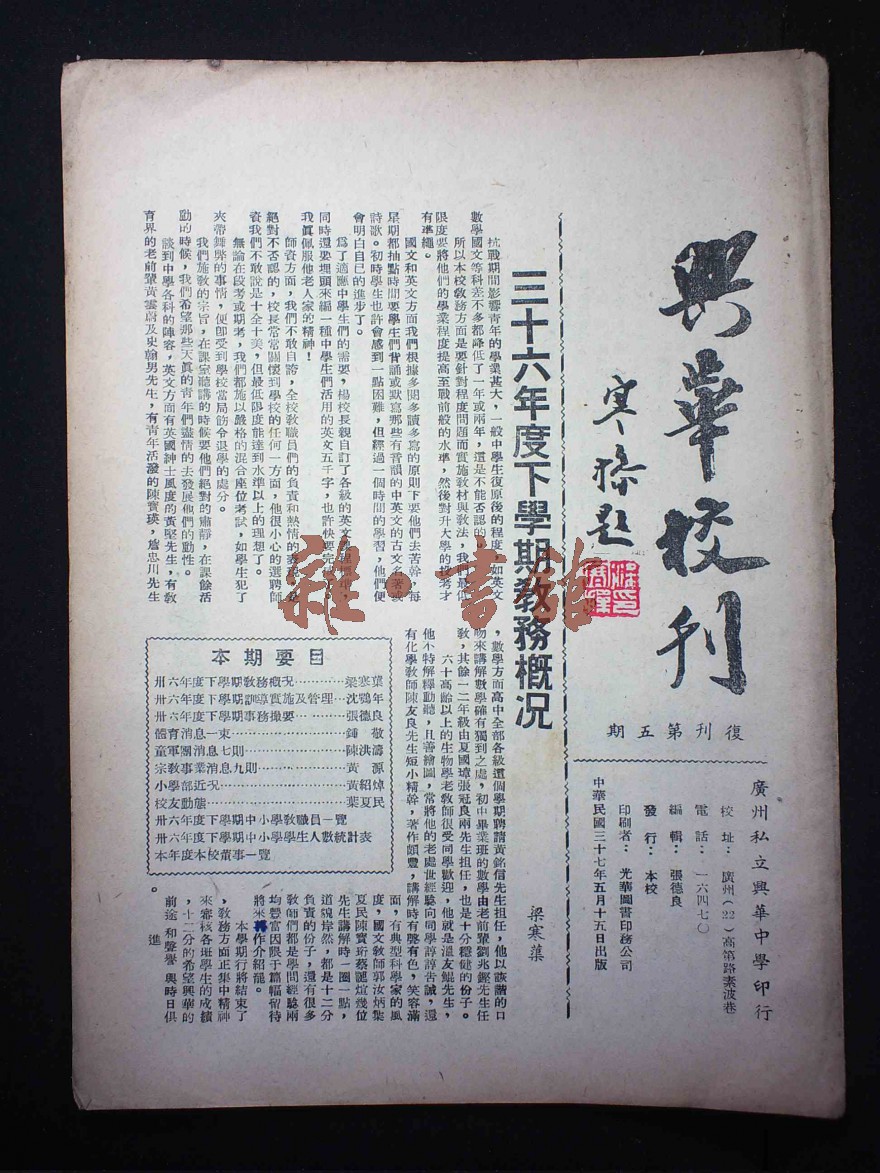 興華校刊
寒操題
復刊第五期
廣州私立興華中學印行
校址：廣州(22)高第路素波巷
電話：一六四七〇
編輯：張德良
發行：本校
印刷者：光華圖書印務公司
中華民國三十七年五月十五日出版
三十六年度下學期教務概況
梁寒葉
抗戰期間影響青年的學業甚大，一般中學生復原後的程度，如英文
數學國文等科差不多都降低了一年或兩年，這是不能否認的。
所以本校教務方面是要針對程度問題而實施教材與教法，我們最低
限度要將他們的學業程度提高至戰前般的水準，然後對升大學的
有準繩。
國文和英文方面我們根據多閱多讀多寫的原則下要他們去苦幹，每
星期都抽點時間要學生們背誦或默寫那些有音韻的中英文的古文名著或
詩歌。初時學生也許會感到一點困難，但經過一個時間的學習，他們便
會明白自已的進步了。
爲了適應中學生們的需要，楊校長親自訂了各級的英文
同時還要埋頭來編一種中學生們活用的英文五千字，也許快要完
我眞佩服他老人家的精神！
師資方面，我們不敢自誇，全校敎職員們的負責和熱情的
絕對不否認的，校長常常關懷到學校的任何一方面，他很小心的選聘師
資我們不敢說是十全十美，但最低限度能達到水準以上的理想了。
無論在段考或期考，我們都施以嚴格的混合座位考試，如學生犯了
夾帶舞弊的事情，便卽受到學校當局飭令退學的處分。
我們施敎的宗旨，在課室聽講的時候要他們絕對的肅靜，在課餘活
動的時候，我們希望那些天眞的青年們盡情的去發展他們的動性。
談到中學各科的陣容，英文方面有英國紳士風度的黃堅先生，有敎
育界的老前輩黃雲蔚及史翰男先生，有青年活潑的陳寶瑛，詹忠川先生
，數學方面高中全部各級這個學期聘請黃銘信先生担任，他以詼諧的口
吻來講解數學確有獨到之處，初中畢業班的數學由老前輩劉兆鏗先生任
敎，其餘一二年級由夏國璋張冠良兩先生担任，也是十分穩健的份子。
六十高齡以上的生物學老敎師很受同學歡迎，他就是溫友鯤先生，
他不特解釋動聽，且善繪圖，常將他的老處世經驗向同學諄諄告誡，還
有化學敎師陳友良先生短小精幹，著作頗豐，講解時有聲有色，笑容滿
面，有典型科學家的風
度，國文敎師郭汝炳葉
夏民陳寶珩蔡麗煊幾位
先生講解時一圈一點，
道貌岸然，都是十二分
負責的份子，還有很多
敎師們都是學問經驗兩
均豐富因限于篇幅留待
將來再作介紹罷。
本學期行將結束了
，敎務方面正集中精神
來審核各班學生的成績
，十二分的希望興華的
前途和聲譽與時日俱
進
。
本期要目
卅六年度下學期敎務概況……梁寒葉
卅六年度下學期訓導實施及管理…沈鶚年
卅六年度下學期事務撮要……張德良
體育消息一束……鍾敬
童軍團消息七則……陳洪濤
宗敎事業消息九則……黃源
小學部近況……黃紹焯
校友動態……葉夏民
卅六年度下學期中小學敎職員一覽
卅六年度下學期中小學學生人數統計表
本年度本校董事一覽
雜書館